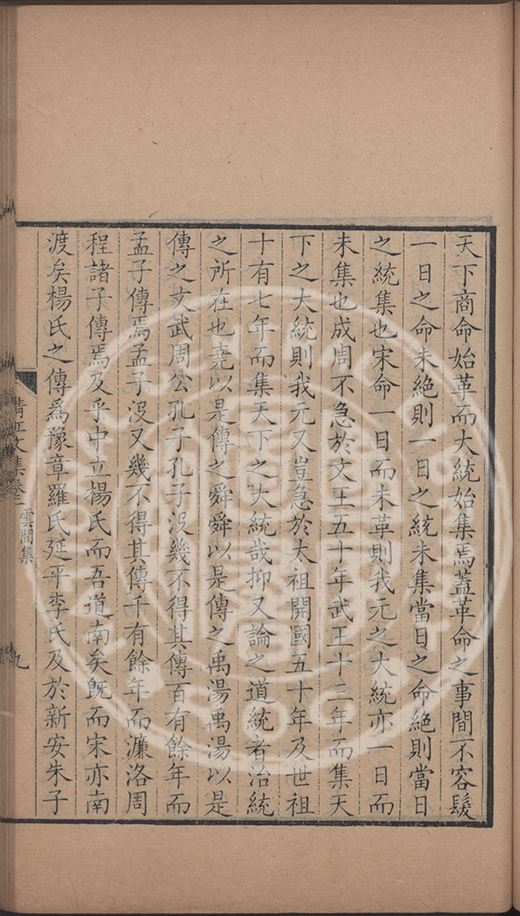 天下商命始革而大統始集焉蓋革命之事間不容髮
一日之命未絕則一日之統未集當日之命絕則當日
之統集也宋命一日而未革則我元之大統亦一日而
未集也成周不急於文王五十年武王十三年而集天
下之大統則我元又豈急於太祖開國五十年及世祖
十有七年而集天下之大統哉抑又論之道統者治統
之所在也堯以是傳之舜舜以是傳之禹湯禹湯以是
傳之文武周公孔子孔子没幾不得其傳百有餘年而
孟子傳焉孟子没又幾不得其傳千有餘年而濂洛周
程諸子傳焉及乎中立楊氏而吾道南矣既而宋亦南
渡矣楊氏之傳爲豫章羅氏延平李氏及於新安朱子
文集卷二
雲間集
九